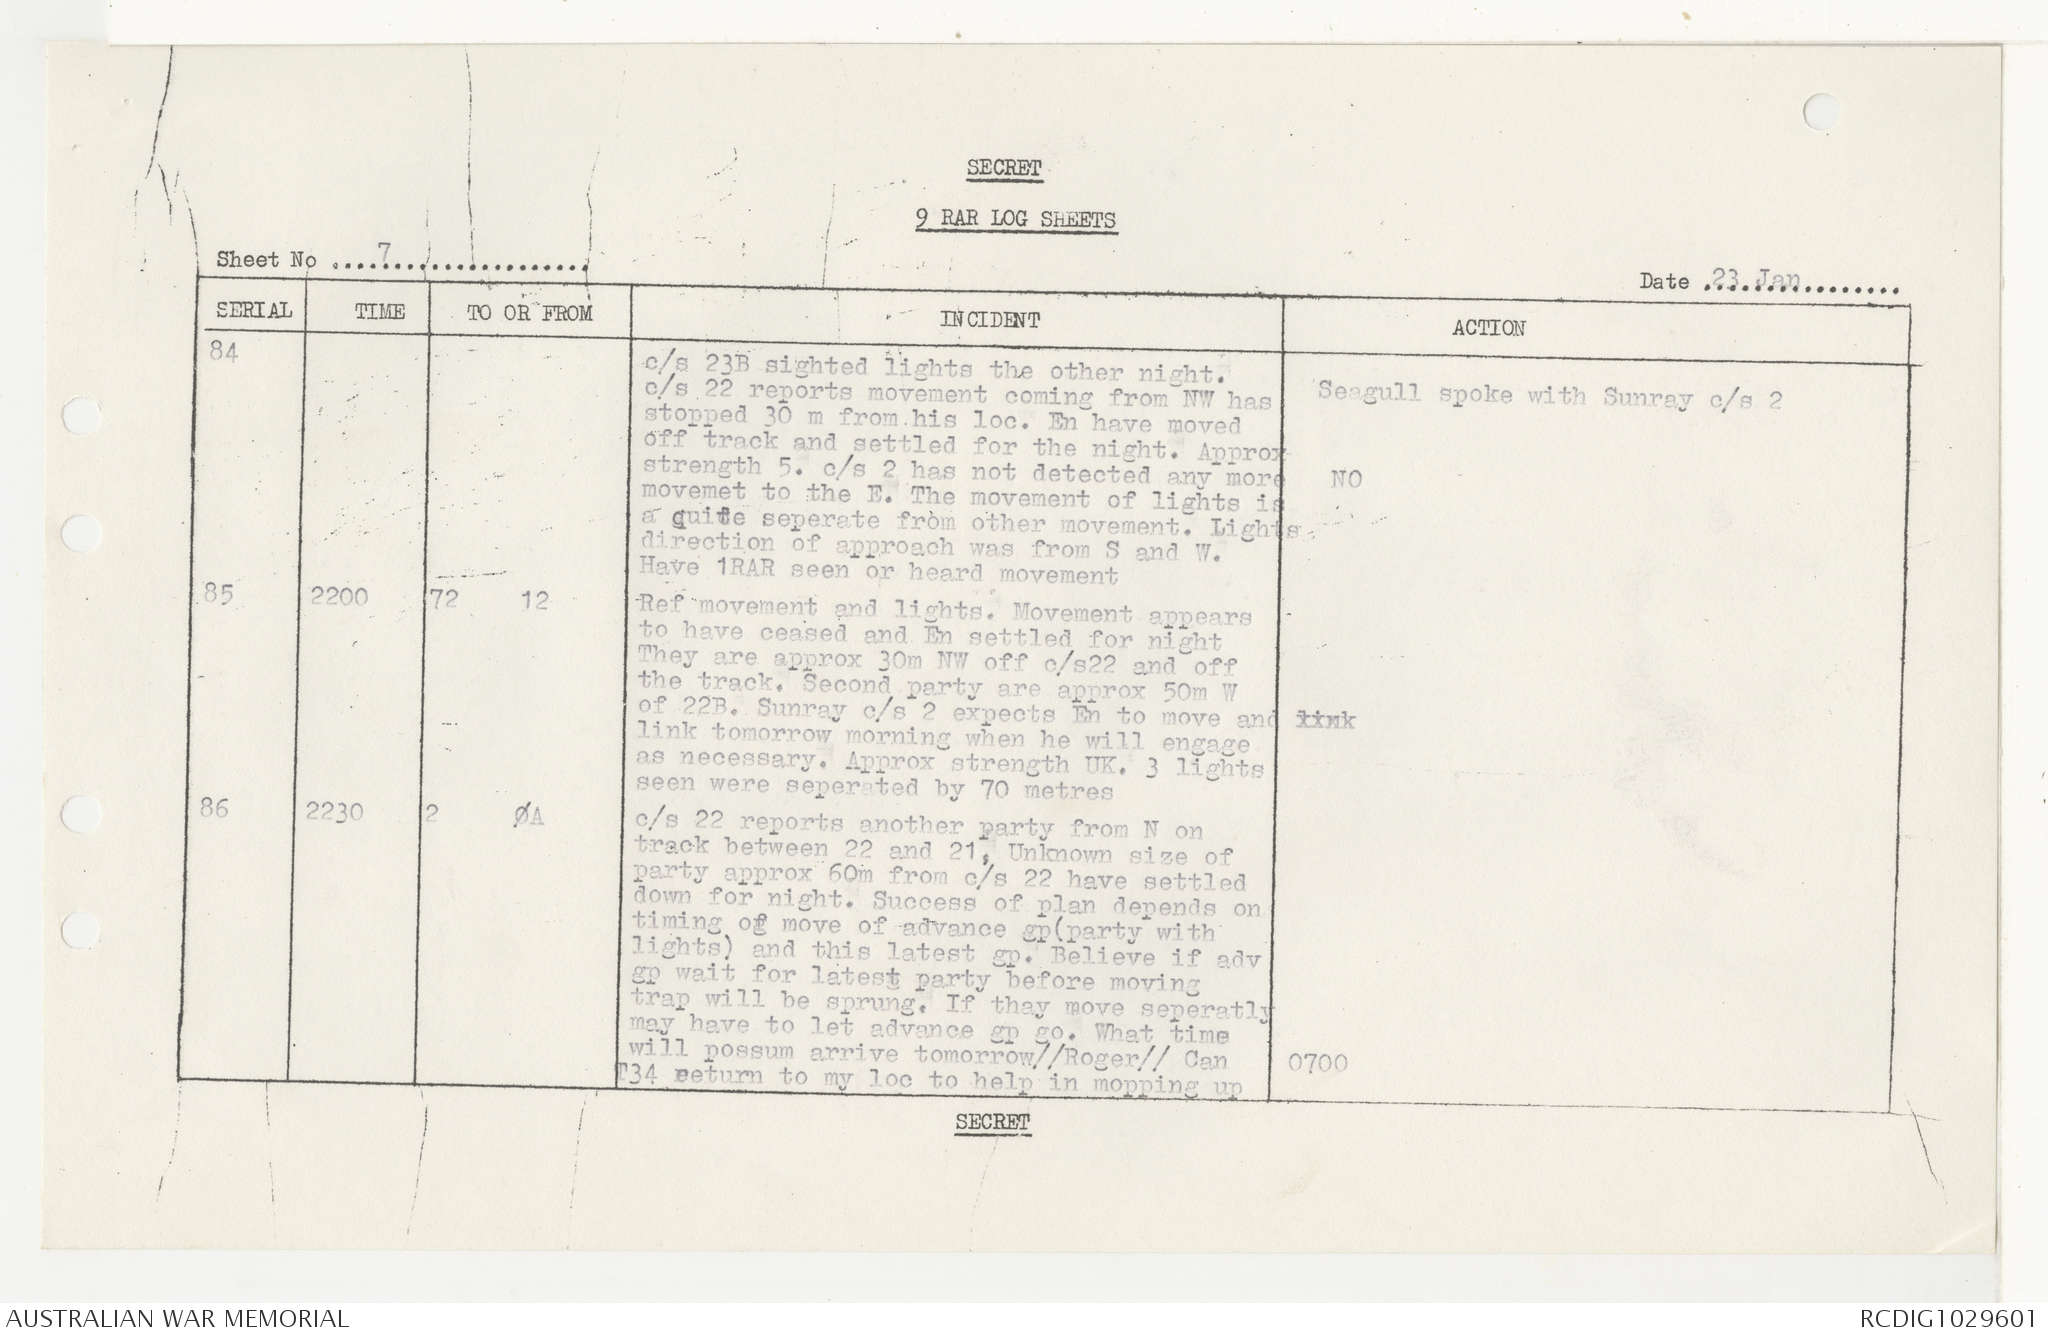 SECRET
9 RAR LOG SHEETS
Sheet No ....7................
Date .23 Jan........
SERIAL TIME TO OR FROM INCIDENT ACTION
84
c/s 23B sighted lights the other night.
c/s 22 reports movement coming from NW has
Seagull spoke with Sunray c/s 2
stopped 30 m from his loc. En have moved
off track and settled for the night. Approx
strength 5. c/s 2 has not detected any more NO
movemet to the E. The movement of lights is
a quite seperate from other movement. Lights
direction of approach was from S and W.
Have 1RAR seen or heard movement
85 2200 72 12 Ref movement and lights. Movement appears
to have ceased and En settled for night
They are approx 30m NW off c/s22 and off
the track. Second party are approx 50m W
of 22B. Sunray c/s 2 expects En to move and link
link tomorrow morning when he will engage
as necessary. Approx strength UK. 3 lights
seen were seperated by 70 metres
86 2230 2 ØA c/s 22 reports another party from N on
track between 22 and 21, Unknown size of
party approx 60m from c/s 22 have settled
down for night. Success of plan depends on
timing of move of advance gp(party with
lights) and this latest gp. Believe if adv
gp wait for latest party before moving
trap will be sprung. If thay move seperatly
may have to let advance gp go. What time
will possum arrive tomorrow//Roger// Can 0700
T34 return to my loc to help in mopping up
SECRET
AUSTRALIAN WAR MEMORIAL RCDIG1029601